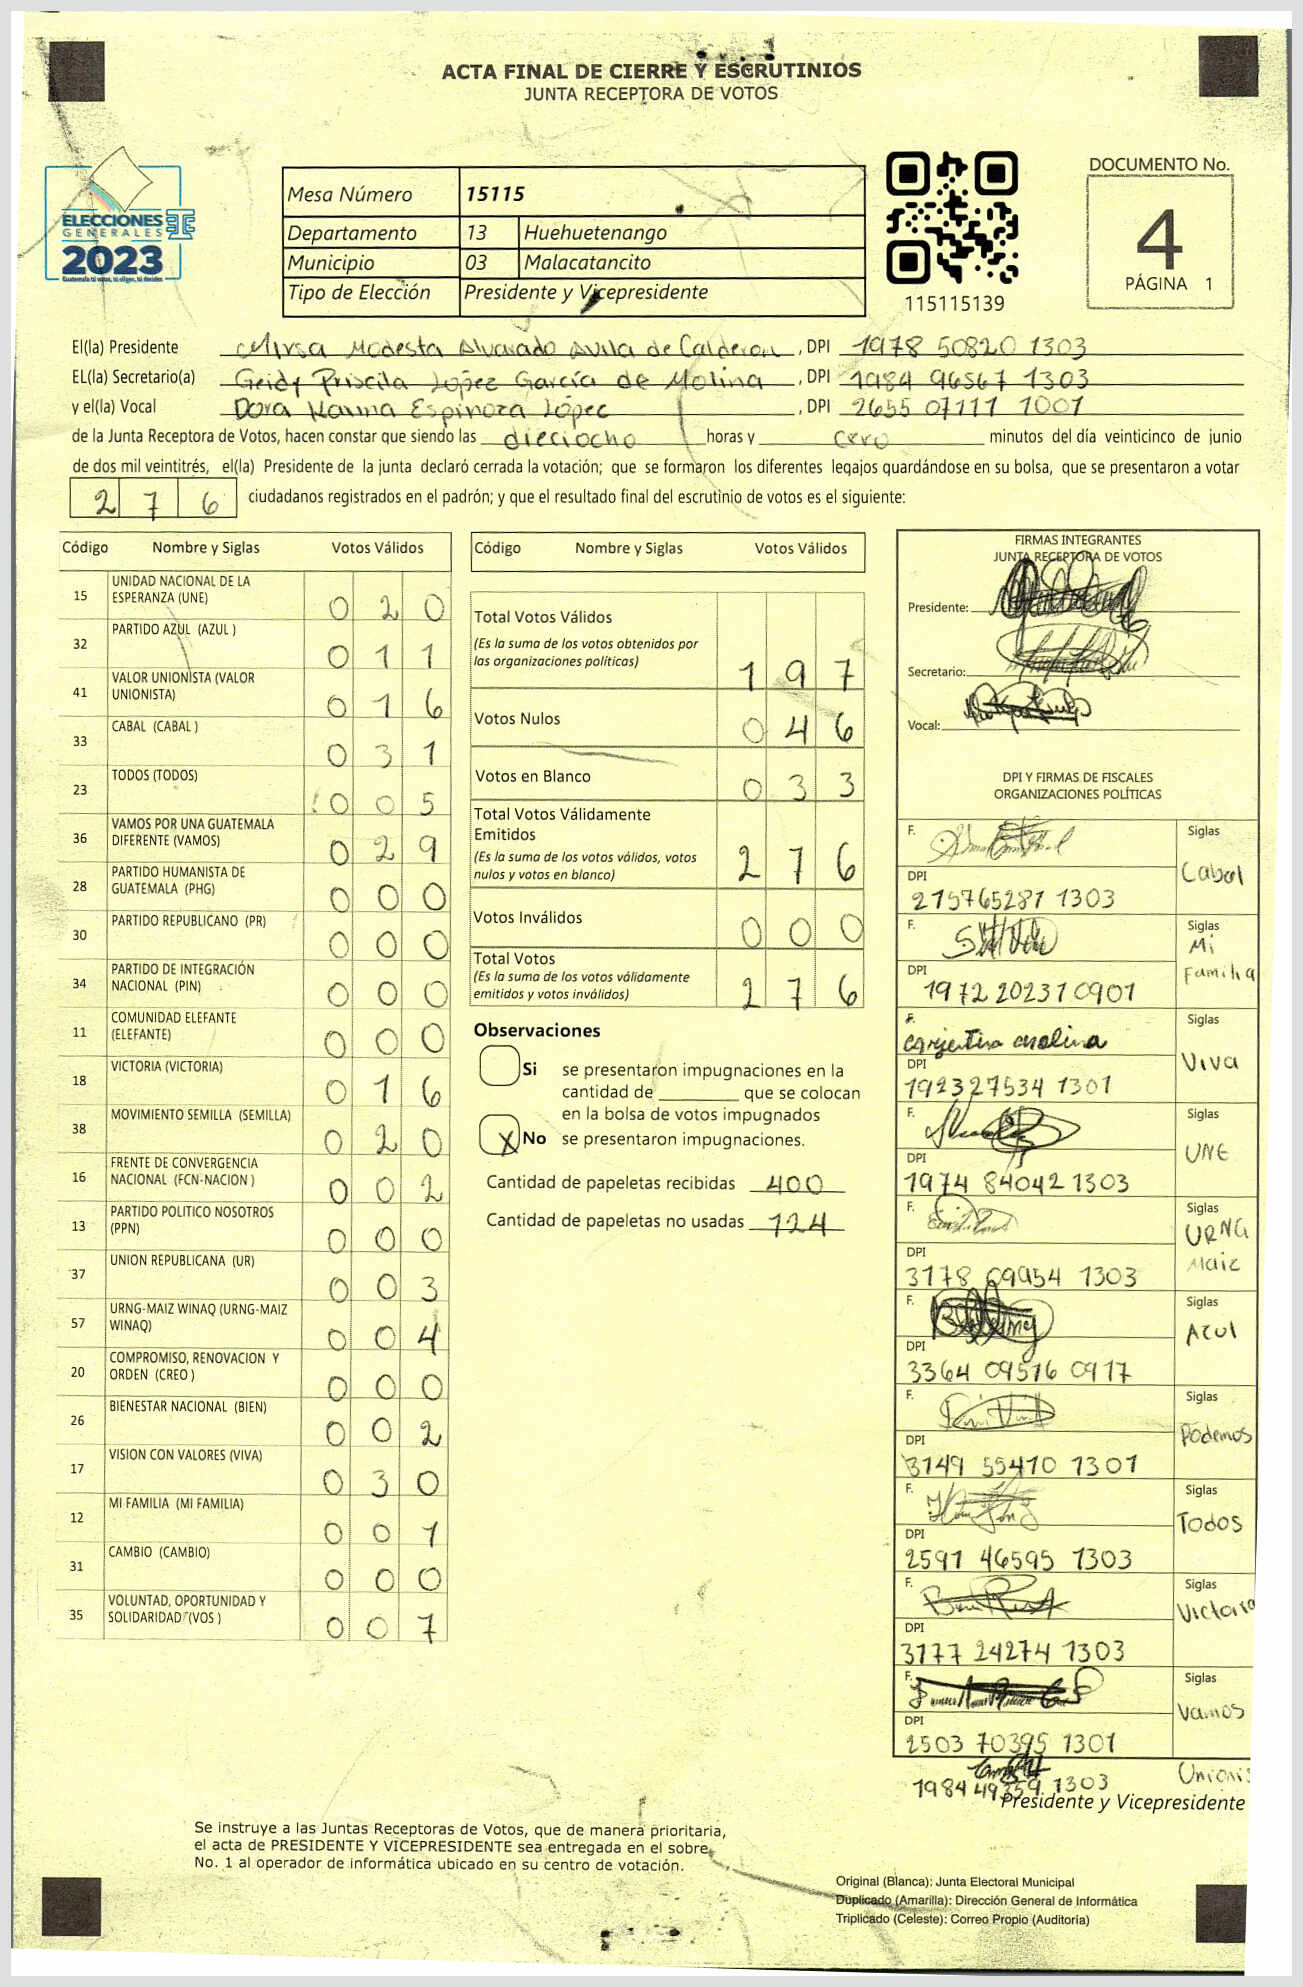 ACTA FINAL DE CIERRE Y ESCRUTINIOS
JUNTA RECEPTORA DE VOTOS
ELECCIONES
GENERALES
2023
Guatemala tú votas, tú eliges, tú decides
Mesa Número 15115
Departamento 13 Huehuetenango
Municipio 03 Malacatancito
Tipo de Elección Presidente y Vicepresidente
115115139
DOCUMENTO No.
4
PÁGINA 1
El(la) Presidente Mirsa Modesta Alvarado Avila de Calderon, DPI 1978 50820 1303
EL(la) Secretario(a) Geidy Priscila López García de Molina, DPI 1984 96567 1303
y el(la) Vocal Dora Karina Espinoza López, DPI 2655 07111 1001
de la Junta Receptora de Votos, hacen constar que siendo las dieciocho horas y cero minutos del día veinticinco de junio
de dos mil veintitrés, el(la) Presidente de la junta declaró cerrada la votación; que se formaron los diferentes legajos guardándose en su bolsa, que se presentaron a votar
2 7 6 ciudadanos registrados en el padrón; y que el resultado final del escrutinio de votos es el siguiente:
Código Nombre y Siglas Votos Válidos
15 UNIDAD NACIONAL DE LA
ESPERANZA (UNE) 0 2 0
32 PARTIDO AZUL (AZUL ) 0 1 1
41 VALOR UNIONISTA (VALOR
UNIONISTA) 0 1 6
33 CABAL (CABAL ) 0 3 1
23 TODOS (TODOS) 0 0 5
36 VAMOS POR UNA GUATEMALA
DIFERENTE (VAMOS) 0 2 9
28 PARTIDO HUMANISTA DE
GUATEMALA (PHG) 0 0 0
30 PARTIDO REPUBLICANO (PR) 0 0 0
34 PARTIDO DE INTEGRACIÓN
NACIONAL (PIN) 0 0 0
11 COMUNIDAD ELEFANTE
(ELEFANTE) 0 0 0
18 VICTORIA (VICTORIA) 0 1 6
38 MOVIMIENTO SEMILLA (SEMILLA) 0 2 0
16 FRENTE DE CONVERGENCIA
NACIONAL (FCN-NACION ) 0 0 2
13 PARTIDO POLITICO NOSOTROS
(PPN) 0 0 0
37 UNION REPUBLICANA (UR) 0 0 3
57 URNG-MAIZ WINAQ (URNG-MAIZ
WINAQ) 0 0 4
20 COMPROMISO, RENOVACION Y
ORDEN (CREO ) 0 0 0
26 BIENESTAR NACIONAL (BIEN) 0 0 2
17 VISION CON VALORES (VIVA) 0 3 0
12 MI FAMILIA (MI FAMILIA) 0 0 1
31 CAMBIO (CAMBIO) 0 0 0
35 VOLUNTAD, OPORTUNIDAD Y
SOLIDARIDAD (VOS ) 0 0 7
Código Nombre y Siglas Votos Válidos
Total Votos Válidos
(Es la suma de los votos obtenidos por
las organizaciones políticas) 1 9 7
Votos Nulos 0 4 6
Votos en Blanco 0 3 3
Total Votos Válidamente
Emitidos
(Es la suma de los votos válidos, votos
nulos y votos en blanco) 2 7 6
Votos Inválidos 0 0 0
Total Votos
(Es la suma de los votos válidamente
emitidos y votos inválidos) 2 7 6
Observaciones
Si se presentaron impugnaciones en la
cantidad de ________ que se colocan
en la bolsa de votos impugnados
X No se presentaron impugnaciones.
Cantidad de papeletas recibidas 400
Cantidad de papeletas no usadas 124
FIRMAS INTEGRANTES
JUNTA RECEPTORA DE VOTOS
Presidente:
Secretario:
Vocal:
DPI Y FIRMAS DE FISCALES
ORGANIZACIONES POLÍTICAS
F. Siglas
Cabal
DPI
215765281 1303
F. Siglas
Mi
Familia
DPI
1972 20231 0901
F. Siglas
Viva
DPI
192327534 1301
F. Siglas
UNE
DPI
1974 84042 1303
F. Siglas
URNG
Maiz
DPI
3178 09954 1303
F. Siglas
Azul
DPI
3364 09516 0917
F. Siglas
Podemos
DPI
3149 55410 1301
F. Siglas
Todos
DPI
2591 46595 1303
F. Siglas
Victoria
DPI
3177 24274 1303
F. Siglas
Vamos
DPI
2503 70395 1301
1984 49359 1303
Presidente y Vicepresidente
Se instruye a las Juntas Receptoras de Votos, que de manera prioritaria,
el acta de PRESIDENTE Y VICEPRESIDENTE sea entregada en el sobre
No. 1 al operador de informática ubicado en su centro de votación.
Original (Blanca): Junta Electoral Municipal
Duplicado (Amarilla): Dirección General de Informática
Triplicado (Celeste): Correo Propio (Auditoría)